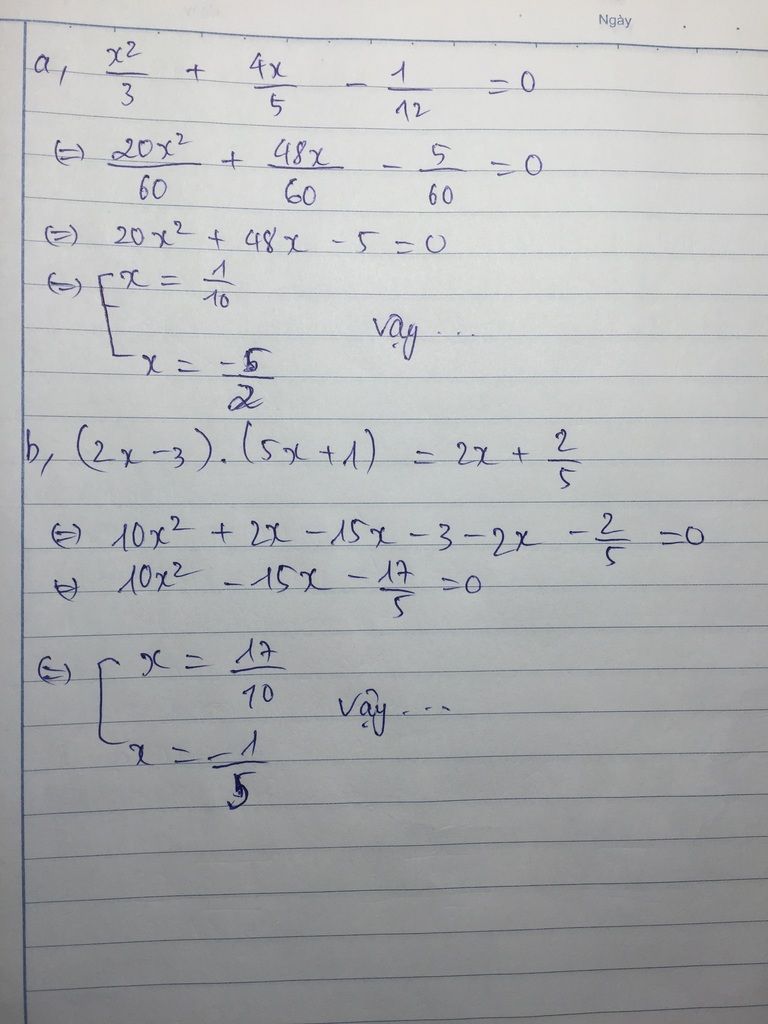 Ngày
a, x²/3 + 4x/5 - 1/12 = 0
(=) 20x²/60 + 48x/60 - 5/60 = 0
(=) 20x² + 48x - 5 = 0
(=) [ x = 1/10
vậy ...
x = -5/2
b, (2x-3).(5x+1) = 2x + 2/5
(=) 10x² + 2x - 15x - 3 - 2x - 2/5 = 0
(=) 10x² - 15x - 17/5 = 0
(=) [ x = 17/10
vậy ...
x = -1/5